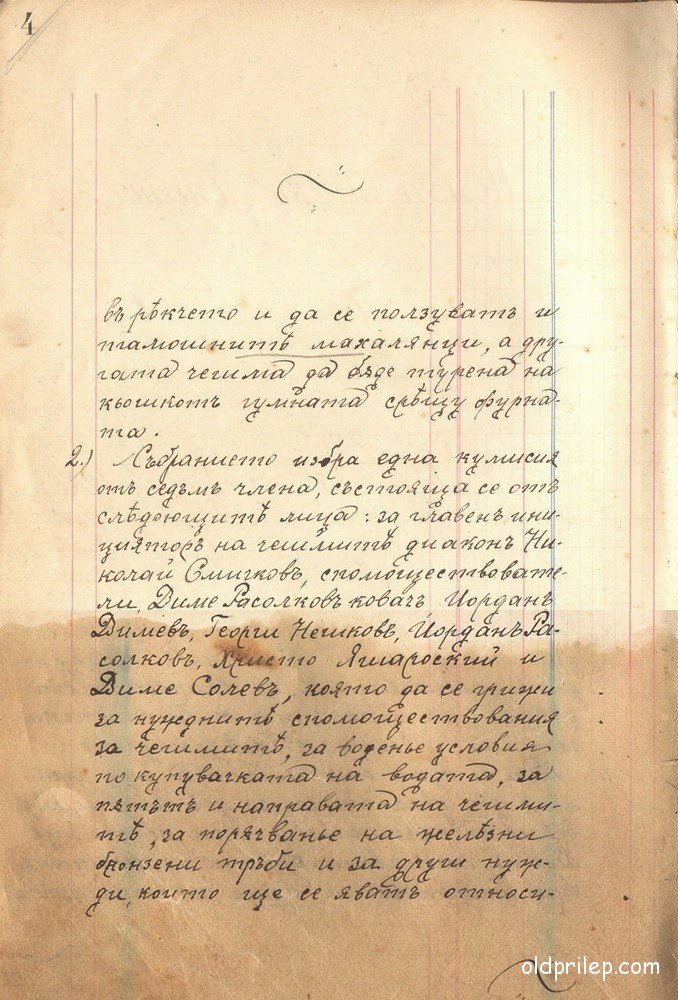 4
въ рѣкчето и да се ползуватъ и
тамошнитѣ махалянци, а дру-
гата чешма да бѫде турена на
кьошкотъ гумната срѣщу фурна-
та.
2.) Събранието избра една кумисия
отъ седъмъ члена, състояща се отъ
слѣдоющитѣ лица: за главенъ ини-
циаторъ на чешмитѣ диаконъ Ни-
колай Смичковъ, спомоществовате-
ли, Диме Расолковъ ковачъ, Иорданъ
Димевъ, Георги Нешковъ, Иорданъ Ра-
солковъ, Христо Яшароский и
Диме Солевъ, която да се грижи
за нужднитѣ спомоществования
за чешмитѣ, за воденье условия
по купувачката на водата, за
пѫтътъ и направата на чешми-
тѣ, за порячванье на желѣзни
бронзени тръби и за други нуж-
ди, които ще се яватъ относи-
oldprilep.com